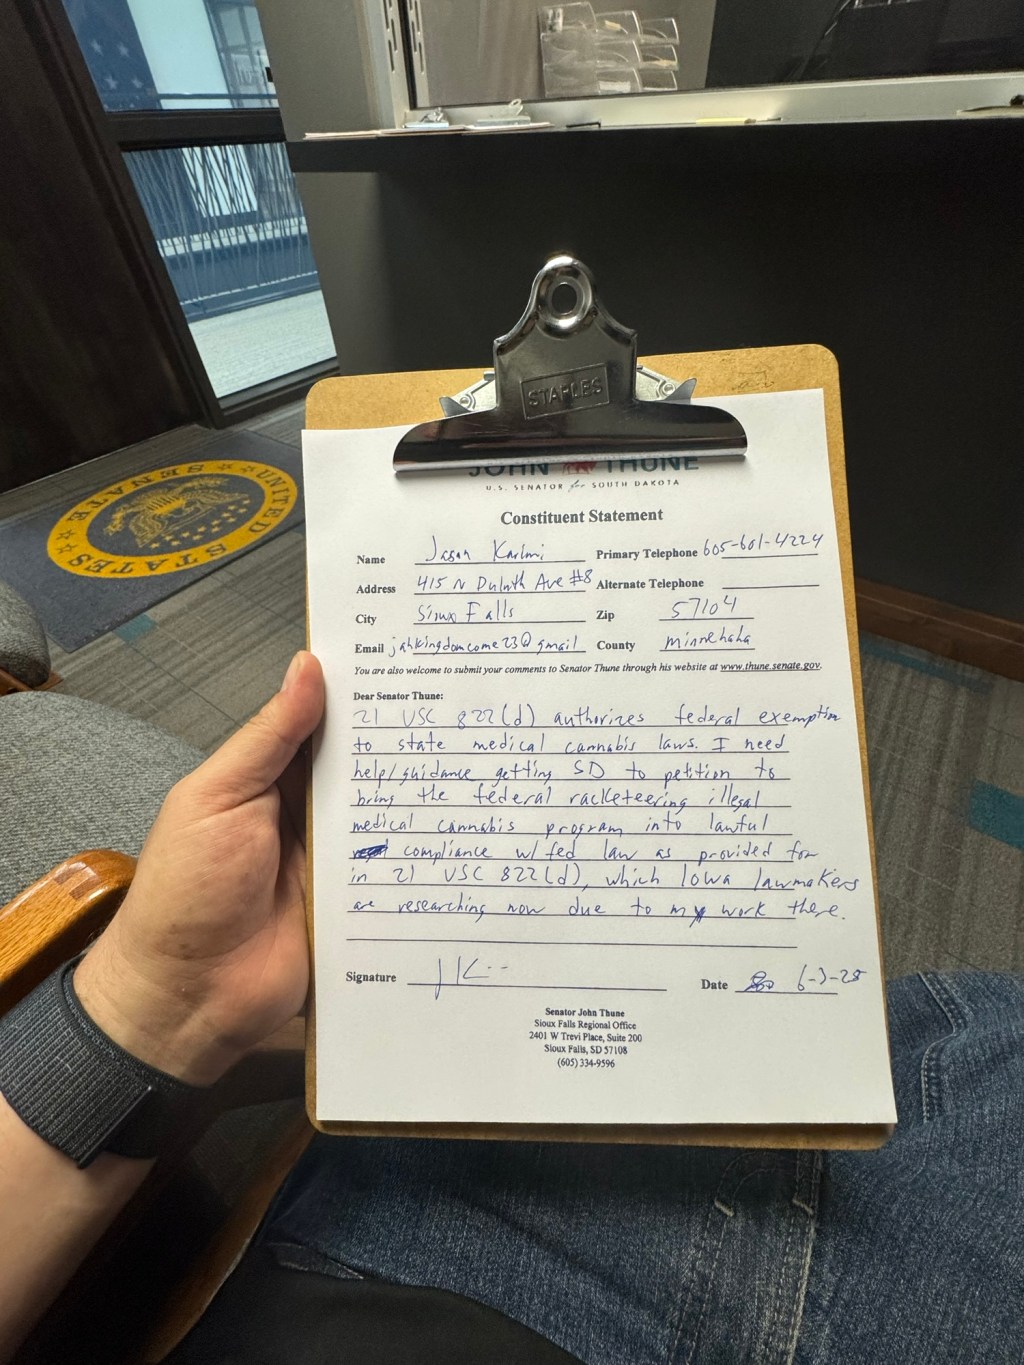 UNITED STATES SENATE
STAPLES
JOHN THUNE
U.S. SENATOR for SOUTH DAKOTA
Constituent Statement
Name Jason Karimi Primary Telephone 605-601-4224
Address 415 N Duluth Ave #8 Alternate Telephone
City Sioux Falls Zip 57104
Email jahkingdomcome23@gmail County minnehaha
You are also welcome to submit your comments to Senator Thune through his website at www.thune.senate.gov.
Dear Senator Thune:
21 USC 822(d) authorizes federal exemption
to state medical cannabis laws. I need
help/guidance getting SD to petition to
bring the federal racketeering illegal
medical cannabis program into lawful
compliance w/ fed law as provided for
in 21 USC 822(d), which Iowa lawmakers
are researching now due to my work there.
Signature JK Date 6-3-25
Senator John Thune
Sioux Falls Regional Office
2401 W Trevi Place, Suite 200
Sioux Falls, SD 57108
(605) 334-9596